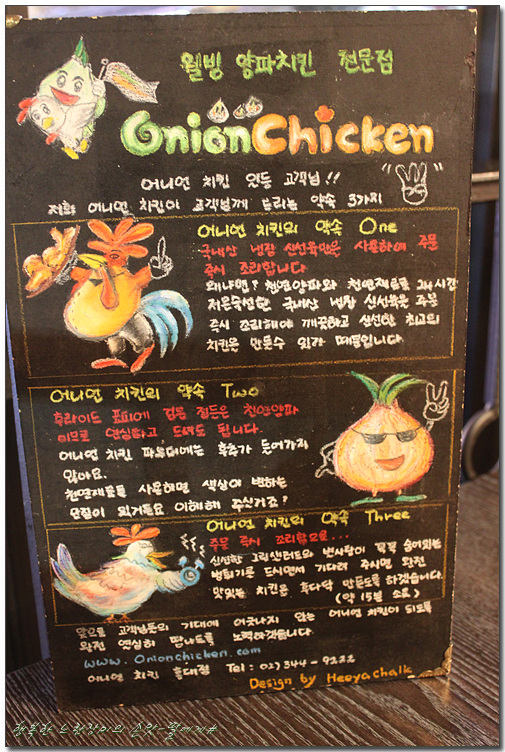 웰빙 양파치킨 전문점
OnionChicken
어니언 치킨 왓등 고객님!!
저희 어니언 치킨이 고객님께 드리는 약속 3가지
어니언 치킨의 약속 One
국내산 냉장 신선육만을 사용하여 주문
즉시 조리합니다
왜냐면? 천연양파와 천연재료로 24시간
저온숙성한 국내산 냉장 신선육은 주문
즉시 조리해야 깨끗하고 신선한 최고의
치킨을 만들수 있기 때문입니다.
어니언 치킨의 약속 Two
후라이드 표피에 검은 점들은 천연양파
이므로 안심하고 드셔도 됩니다.
어니언 치킨 파우더에는 후추가 들어가지
않아요.
천연재료를 사용하면 색상이 변하는
단점이 있거든요 이해해 주실거죠?
어니언 치킨의 약속 Three
주문 즉시 조리함으로...
신선한 그린샐러드와 번사탕이 꼭꼭 숨어있는
뻥튀기를 드시면서 기다려 주시면 완전
맛있는 치킨을 후다닥 만들도록 하겠습니다.
(약 15분 소요)
앞으로 고객님들의 기대에 어긋나지 않는 어니언 치킨이 되도록
완전 열심히 땀나도록 노력하겠습니다.
www.Onionchicken.com
어니언 치킨 홍대점 Tel : 02)344-9222
Design by Heeyachalk